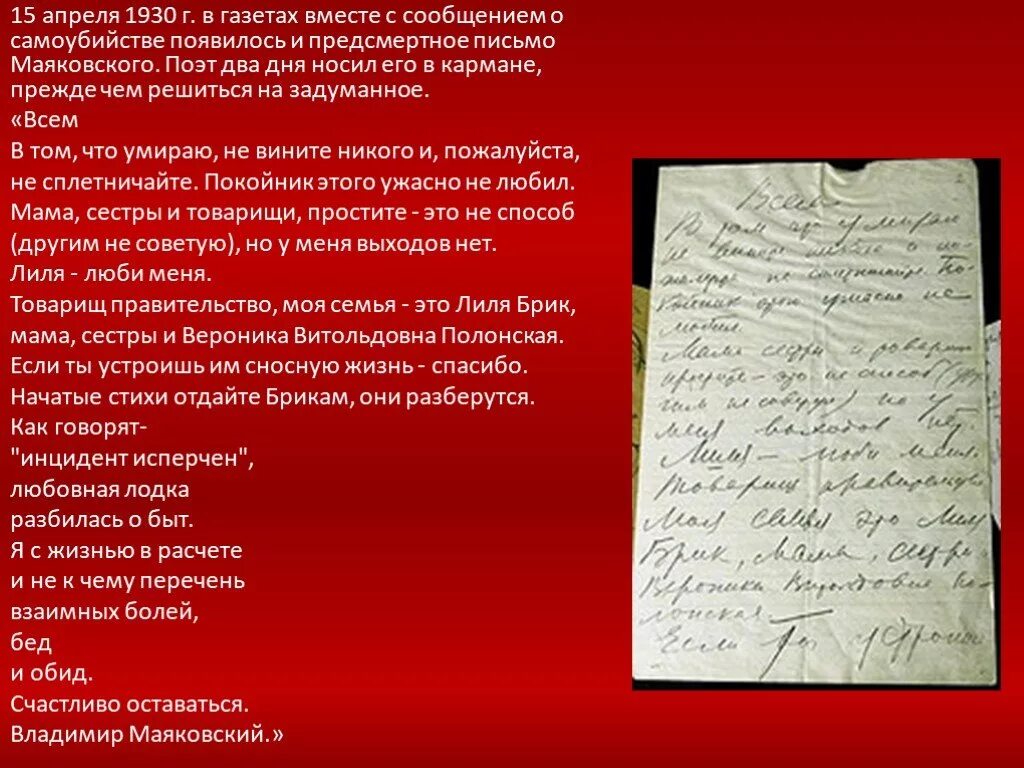 15 апреля 1930 г. в газетах вместе с сообщением о
самоубийстве появилось и предсмертное письмо
Маяковского. Поэт два дня носил его в кармане,
прежде чем решиться на задуманное.
«Всем
В том, что умираю, не вините никого и, пожалуйста,
не сплетничайте. Покойник этого ужасно не любил.
Мама, сестры и товарищи, простите - это не способ
(другим не советую), но у меня выходов нет.
Лиля - люби меня.
Товарищ правительство, моя семья - это Лиля Брик,
мама, сестры и Вероника Витольдовна Полонская.
Если ты устроишь им сносную жизнь - спасибо.
Начатые стихи отдайте Брикам, они разберутся.
Как говорят-
"инцидент исперчен",
любовная лодка
разбилась о быт.
Я с жизнью в расчете
и не к чему перечень
взаимных болей,
бед
и обид.
Счастливо оставаться.
Владимир Маяковский.»
Всем
В том что умираю
не вините никого и по-
жалуйста не сплетничайте. По-
койник этого ужасно не
любил.
Мама сестры и товарищи
простите - это не способ (дру-
гим не советую) но у
меня выходов нет.
Лиля - люби меня.
Товарищ правительство
моя семья это Лиля
Брик, мама, сестры и
Вероника Витольдовна По-
лонская.
Если ты устроишь